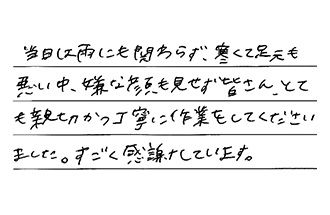 当日は雨にも関わらず、寒くて足元も
悪い中、嫌な顔も見せず皆さん、とて
も親切かつ丁寧に作業をしてください
ました。すごく感謝しています。